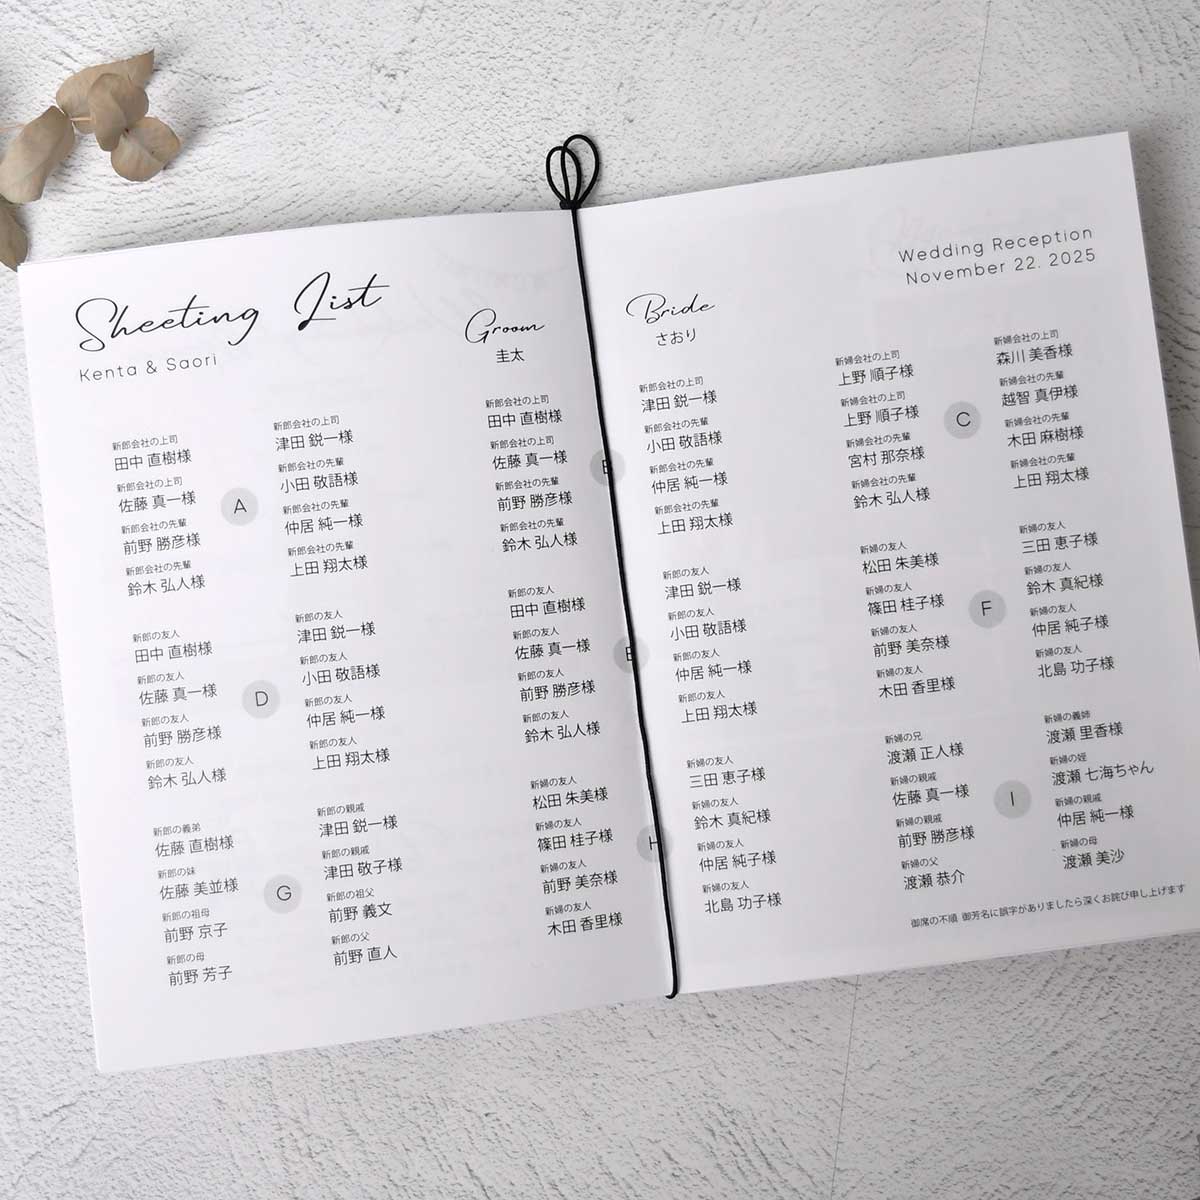 Sheeting List
Kenta & Saori
Groom
圭太
Bride
さおり
Wedding Reception
November 22. 2025
新郎会社の上司
田中 直樹様
新郎会社の上司
佐藤 真一様
新郎会社の先輩
前野 勝彦様
新郎会社の先輩
鈴木 弘人様
A
新郎会社の上司
津田 鋭一様
新郎会社の先輩
小田 敬語様
新郎会社の先輩
仲居 純一様
新郎会社の先輩
上田 翔太様
新郎会社の上司
田中 直樹様
新郎会社の上司
佐藤 真一様
新郎会社の先輩
前野 勝彦様
新郎会社の先輩
鈴木 弘人様
新郎会社の上司
津田 鋭一様
新郎会社の先輩
小田 敬語様
新郎会社の先輩
仲居 純一様
新郎会社の先輩
上田 翔太様
新婦会社の上司
上野 順子様
新婦会社の上司
上野 順子様
新婦会社の先輩
宮村 那奈様
新婦会社の先輩
鈴木 弘人様
C
新婦会社の上司
森川 美香様
新婦会社の先輩
越智 真伊様
新婦会社の先輩
木田 麻樹様
新婦会社の先輩
上田 翔太様
新郎の友人
田中 直樹様
新郎の友人
佐藤 真一様
新郎の友人
前野 勝彦様
新郎の友人
鈴木 弘人様
D
新郎の友人
津田 鋭一様
新郎の友人
小田 敬語様
新郎の友人
仲居 純一様
新郎の友人
上田 翔太様
新郎の友人
田中 直樹様
新郎の友人
佐藤 真一様
新郎の友人
前野 勝彦様
新郎の友人
鈴木 弘人様
新郎の友人
津田 鋭一様
新郎の友人
小田 敬語様
新郎の友人
仲居 純一様
新郎の友人
上田 翔太様
新婦の友人
松田 朱美様
新婦の友人
篠田 桂子様
新婦の友人
前野 美奈様
新婦の友人
木田 香里様
F
新婦の友人
三田 恵子様
新婦の友人
鈴木 真紀様
新婦の友人
仲居 純子様
新婦の友人
北島 功子様
新郎の義弟
佐藤 直樹様
新郎の妹
佐藤 美並様
新郎の祖母
前野 京子
新郎の母
前野 芳子
G
新郎の親戚
津田 鋭一様
新郎の親戚
津田 敬子様
新郎の祖父
前野 義文
新郎の父
前野 直人
新婦の友人
松田 朱美様
新婦の友人
篠田 桂子様
新婦の友人
前野 美奈様
新婦の友人
木田 香里様
H
新婦の友人
三田 恵子様
新婦の友人
鈴木 真紀様
新婦の友人
仲居 純子様
新婦の友人
北島 功子様
新婦の兄
渡瀬 正人様
新婦の親戚
佐藤 真一様
新婦の親戚
前野 勝彦様
新婦の父
渡瀬 恭介
I
新婦の義姉
渡瀬 里香様
新婦の姪
渡瀬 七海ちゃん
新婦の親戚
仲居 純一様
新婦の母
渡瀬 美沙
御席の不順 御芳名に誤字がありましたら深くお詫び申し上げます